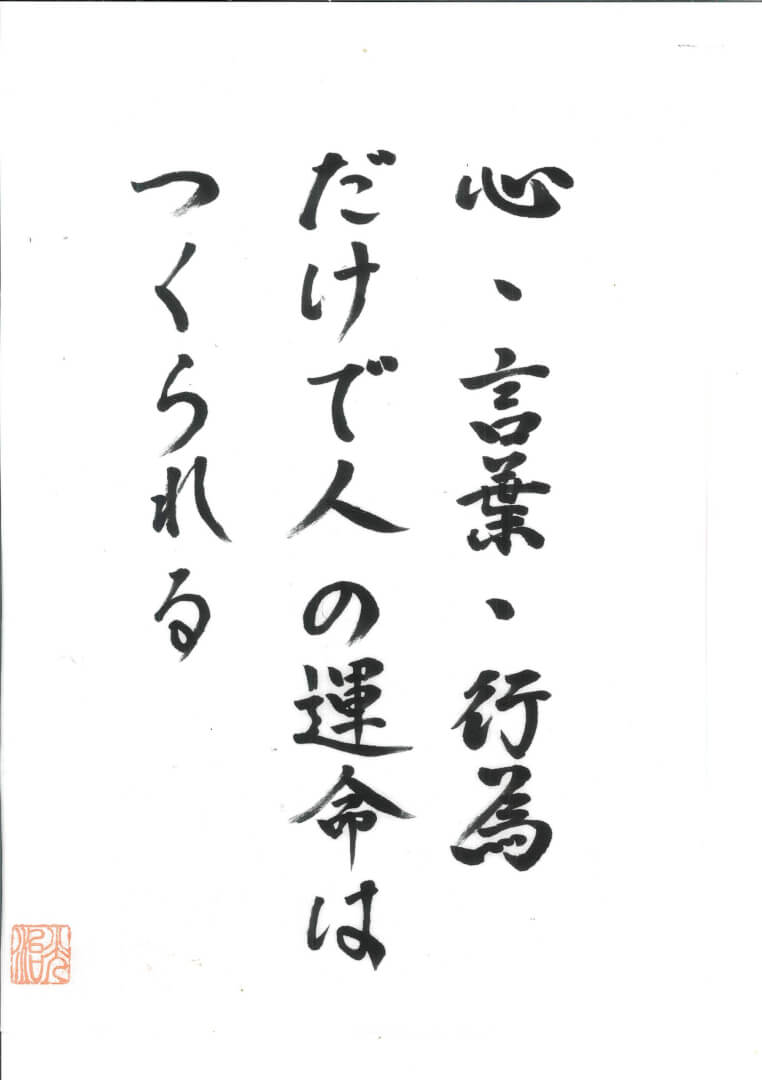 心、言葉、行為
だけで人の運命は
つくられる